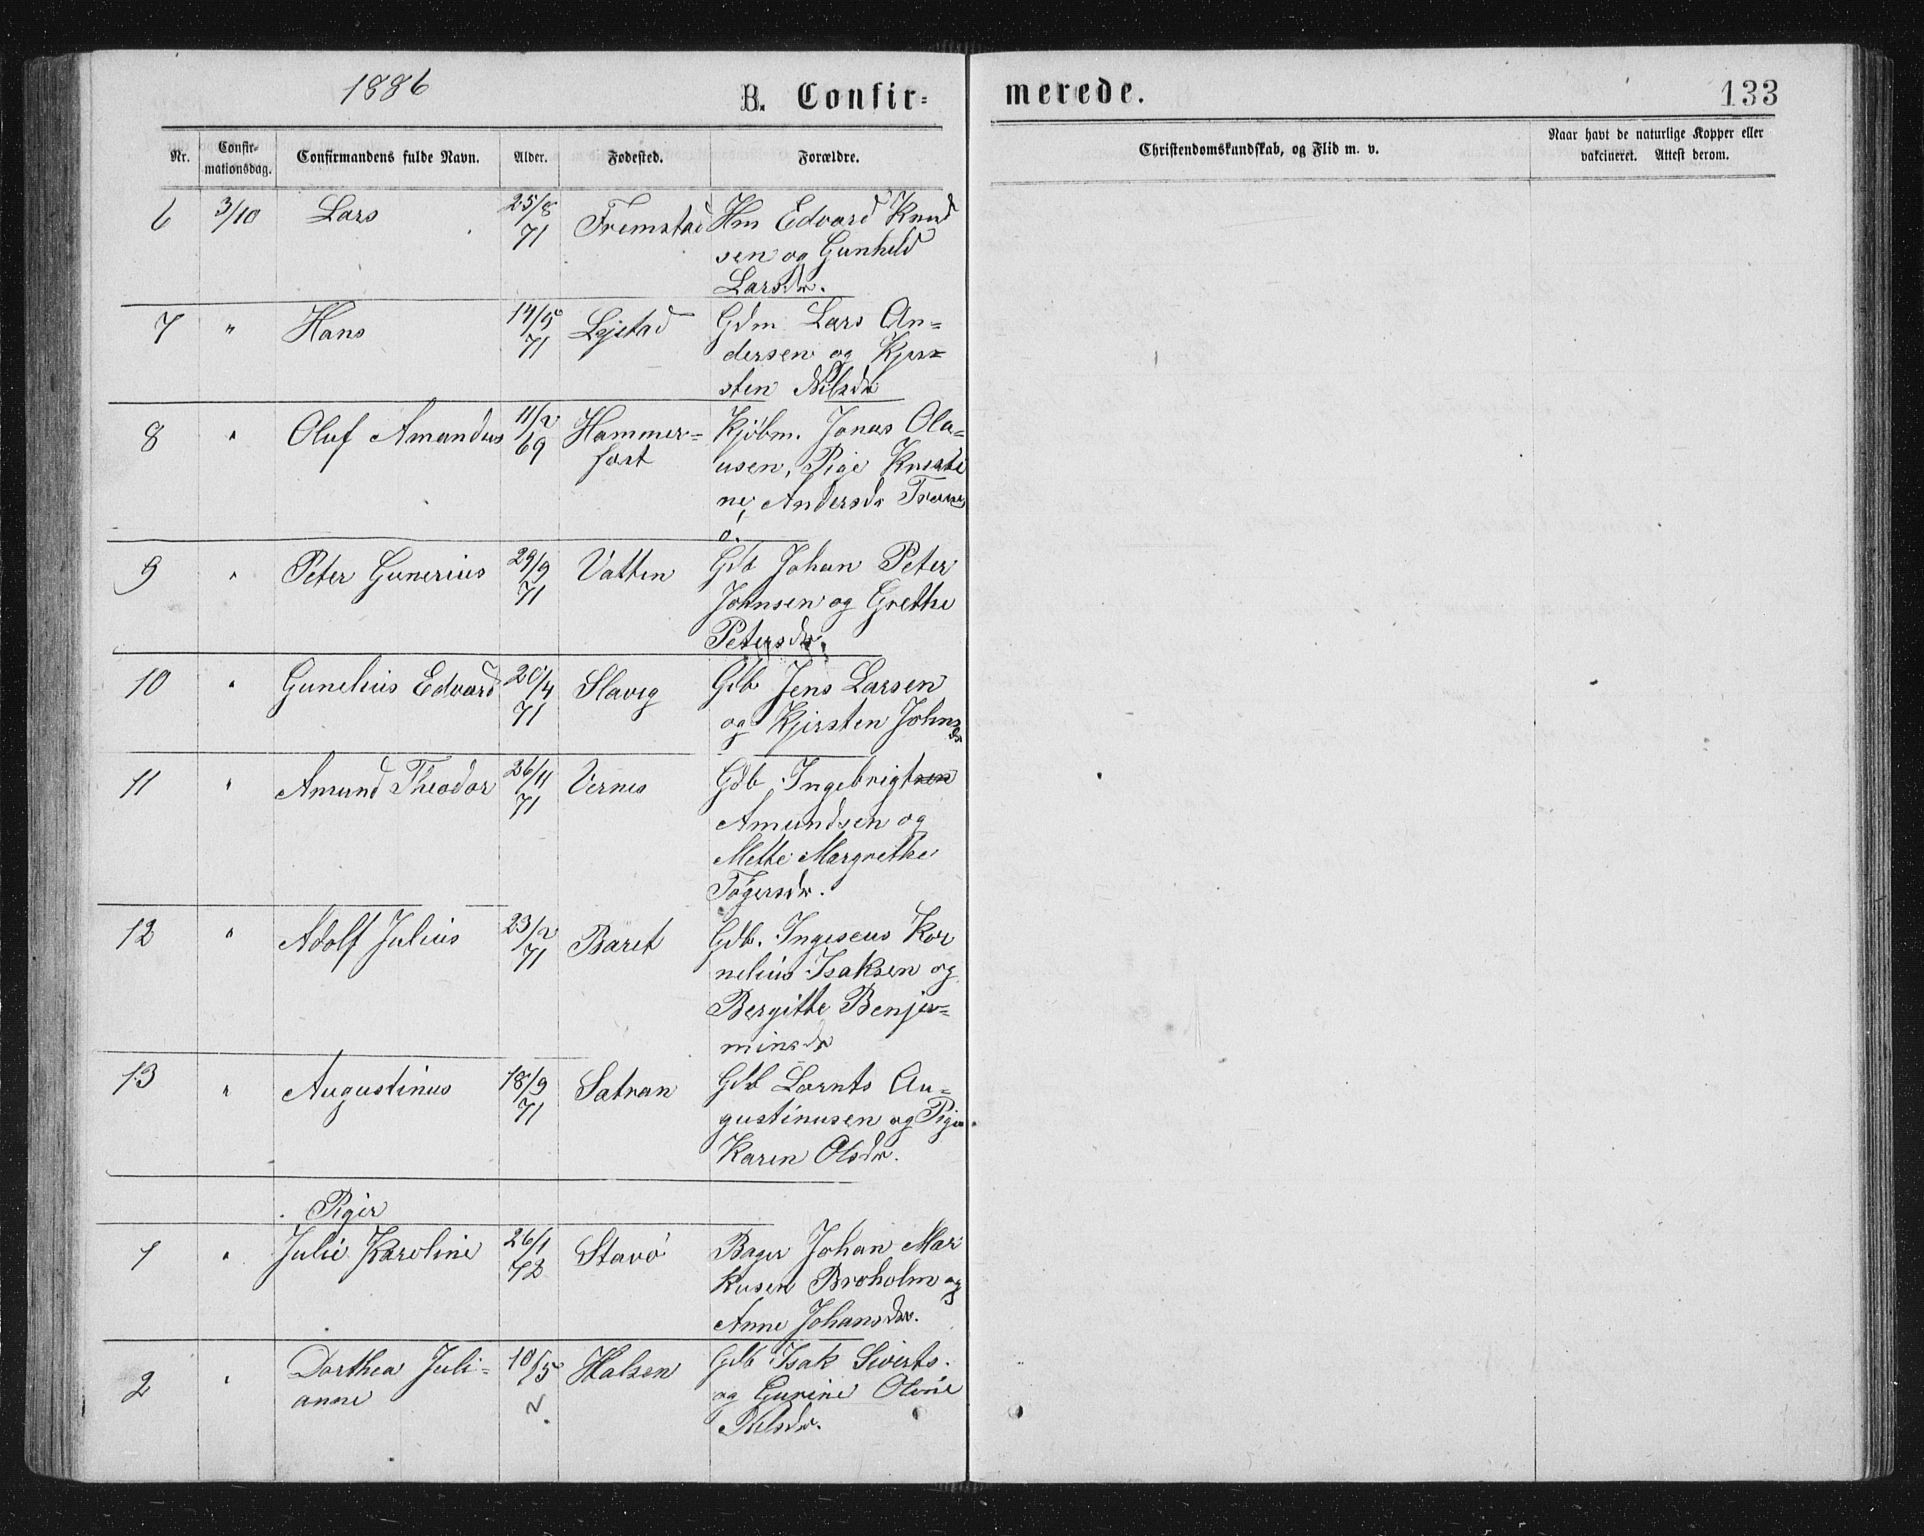 1886
B. Confirmerede.
133
Nr.
Confirmationsdag.
Confirmandens fulde Navn.
Alder.
Fødested.
Forældre.
Christendomskundskab, og Flid m. v.
Naar havt de naturlige Kopper eller
vakcineret. Attest derom.
6 3/10 Lars 25/8 71 Fremstad Hm Edvard Knud
sen og Gunhild
Larsdr.
7 " Hans 14/5 71 Lejstad Gdm Lars An=
dersen og Kjer=
sten Nilsdr
8 " Oluf Amandus 11/2 69 Hammer= Kjøbm. Jonas Ola=
fast usen, Pige Kristi
ne Andersdr Troms
ø.
9 " Peter Gunerius 29/9 71 Vatten Gdb Johan Peter
Johnsen og Grethe
Petersdr.
10 " Gunelius Edvard 20/4 71 Slavig Gdb Jens Larsen
og Kjirsten Johns
dr
11 " Amund Theodor 26/11 71 Vernes Gdb Ingebrigtsen
Amundsen og
Mette Margrethe
Tøgersdr.
12 " Adolf Julius 23/2 71 Baret Gdb. Ingiseus Kor
nelius Isaksen og
Bergitte Benja=
minsdr
13 " Augustinus 18/9 71 Satran Gdb Lornts Au=
gustinusen og Pige
Karen Olsdr.
Piger
1 " Julie Karoline 26/1 72 Stavø Bager Johan Mar
kusen Broholm og
Anne Johansdr.
2 " Dorthea Juli= 10/5 Halsen Gdb Isak Siverts.
anne og Gurine Oline
Nilsdr.